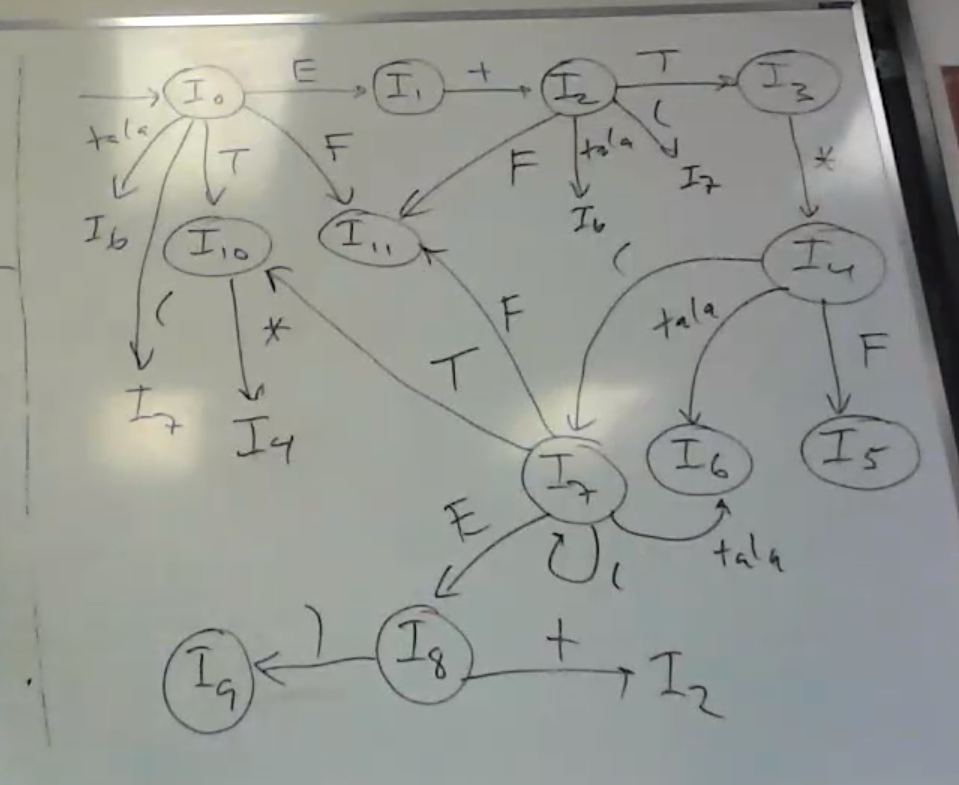 I₀ E I₁ + I₂ T I₃
tala T F F tala ( I₇ *
I₆ I₁₀ I₁₁ I₆ I₄
( * F ( tala F
I₇ I₄ T I₇ I₆ I₅
E ( tala
I₉ ) I₈ + I₂